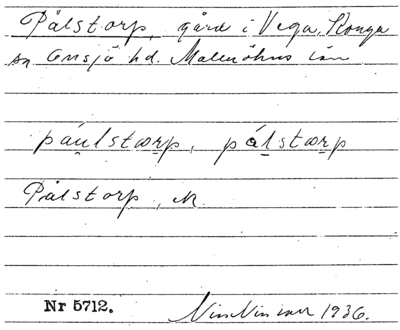 Pålstorp, gård i Vega, Konga
sn Onsjö hd. Malmöhus län
páulstœrp, pálstœrp
Pålstorp, N.
Nr 5712.
1936.